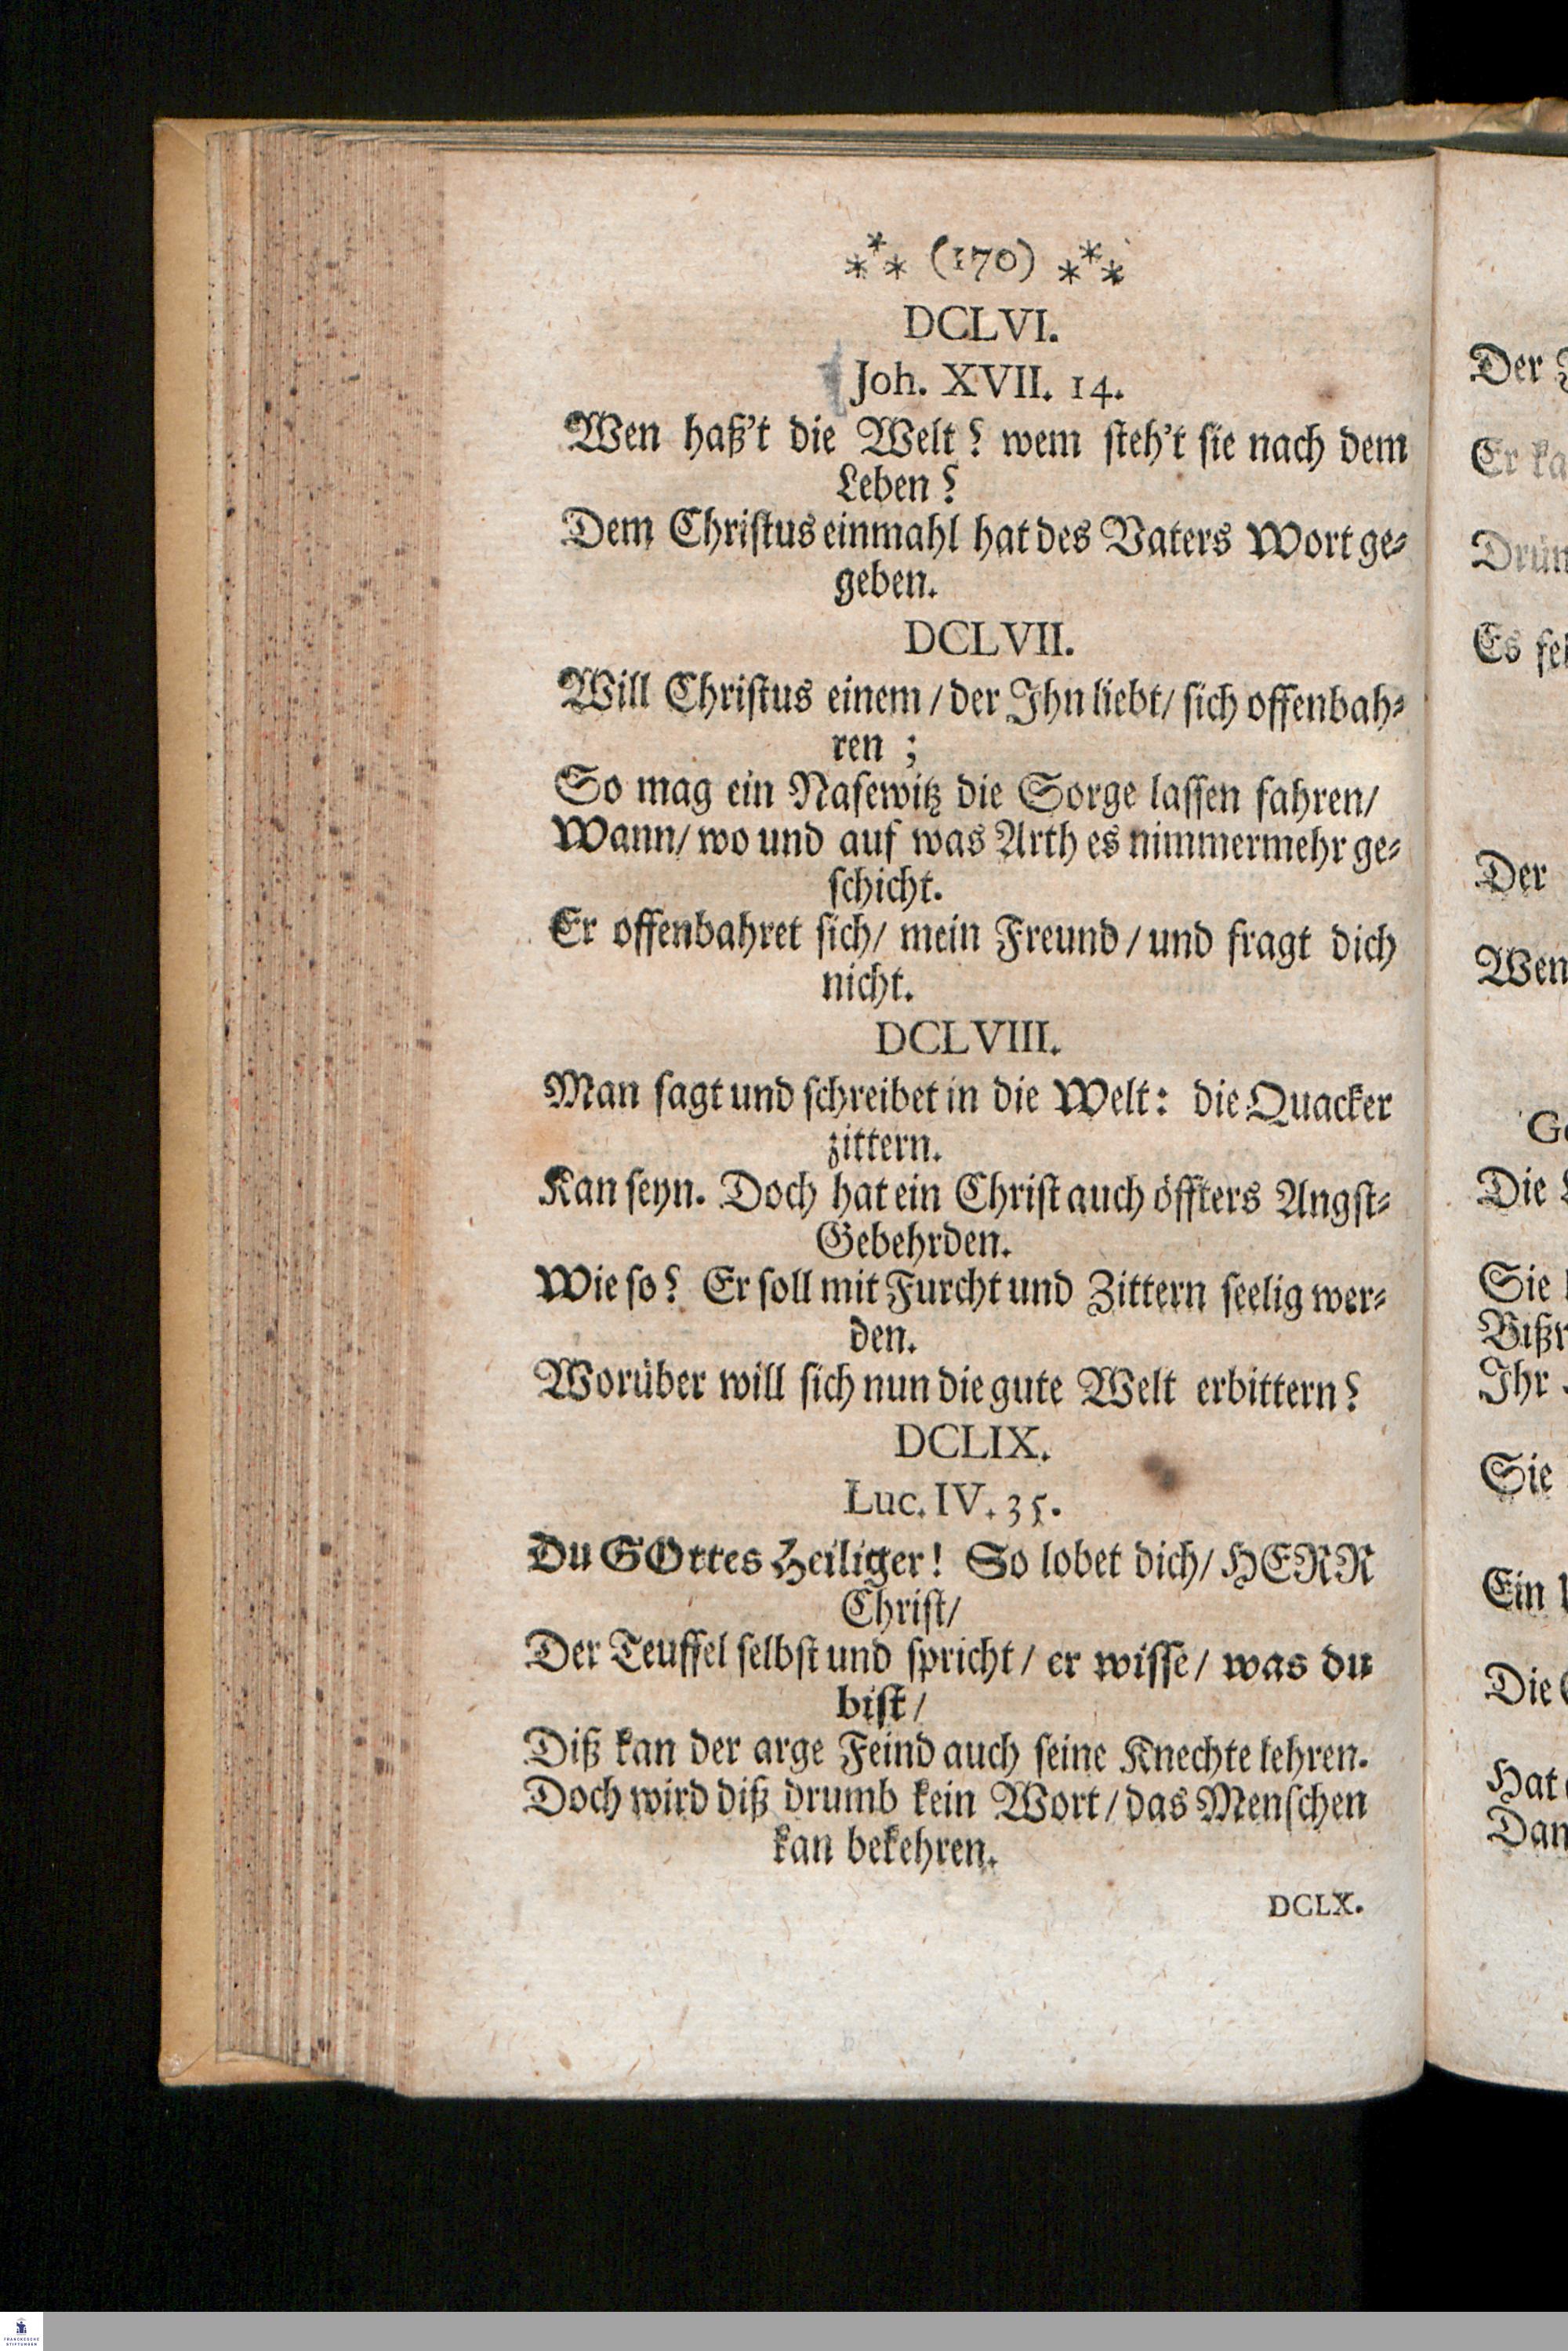 ⁂ (170) ⁂
DCLVI.
Joh. XVII. 14.
Wen haß't die Welt? wem steh't sie nach dem
Leben?
Dem Christus einmahl hat des Vaters Wort ge-
geben.
DCLVII.
Will Christus einem / der Ihn liebt / sich offenbah-
ren ;
So mag ein Nasewitz die Sorge lassen fahren /
Wann / wo und auf was Arth es nimmermehr ge-
schicht.
Er offenbahret sich / mein Freund / und fragt dich
nicht.
DCLVIII.
Man sagt und schreibet in die Welt: die Quacker
zittern.
Kan seyn. Doch hat ein Christ auch öffters Angst-
Gebehrden.
Wie so? Er soll mit Furcht und Zittern seelig wer-
den.
Worüber will sich nun die gute Welt erbittern?
DCLIX.
Luc. IV. 35.
Du GOttes Heiliger! So lobet dich / HERR
Christ /
Der Teuffel selbst und spricht / er wisse / was du
bist /
Diß kan der arge Feind auch seine Knechte lehren.
Doch wird diß drumb kein Wort / das Menschen
kan bekehren.
DCLX.
Der
Er
Es
Der
Die
Sie
Ihr
Sie
Ein
Die
Hat
FRANCKESCHE
STIFTUNGEN